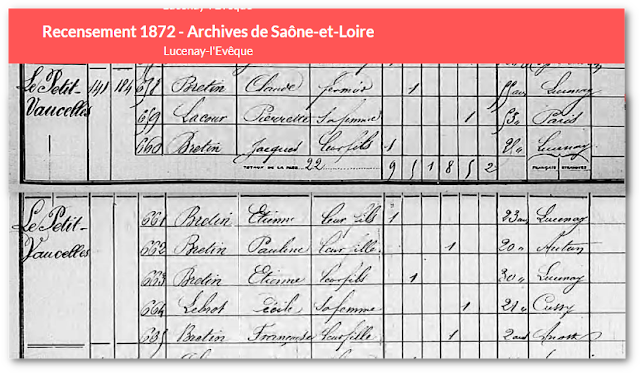 Recensement 1872 - Archives de Saône-et-Loire
Lucenay-l'Evêque
Le Petit- 141 184 658 Bretin Claude fermier 1 55 ans Lucenay
Vaucelles 659 Lacour Pierrette sa femme 1 53 " Paris
660 Bretin Jacques leur fils 1 Lucenay
TOTAUX DE LA PAGE 22 9 5 1 8 5 2 FRANÇAIS ÉTRANGERS
Le Petit- 661 Bretin Etienne leur fils 1 23 ans Lucenay
Vaucelles 662 Bretin Pauline leur fille 1 20 " Autun
663 Bretin Etienne leur fils 1 30 " Lucenay
664 Lebrot Cécile sa femme 1 21 " Cussy
665 Bretin Françoise leur fille 1 2 ans